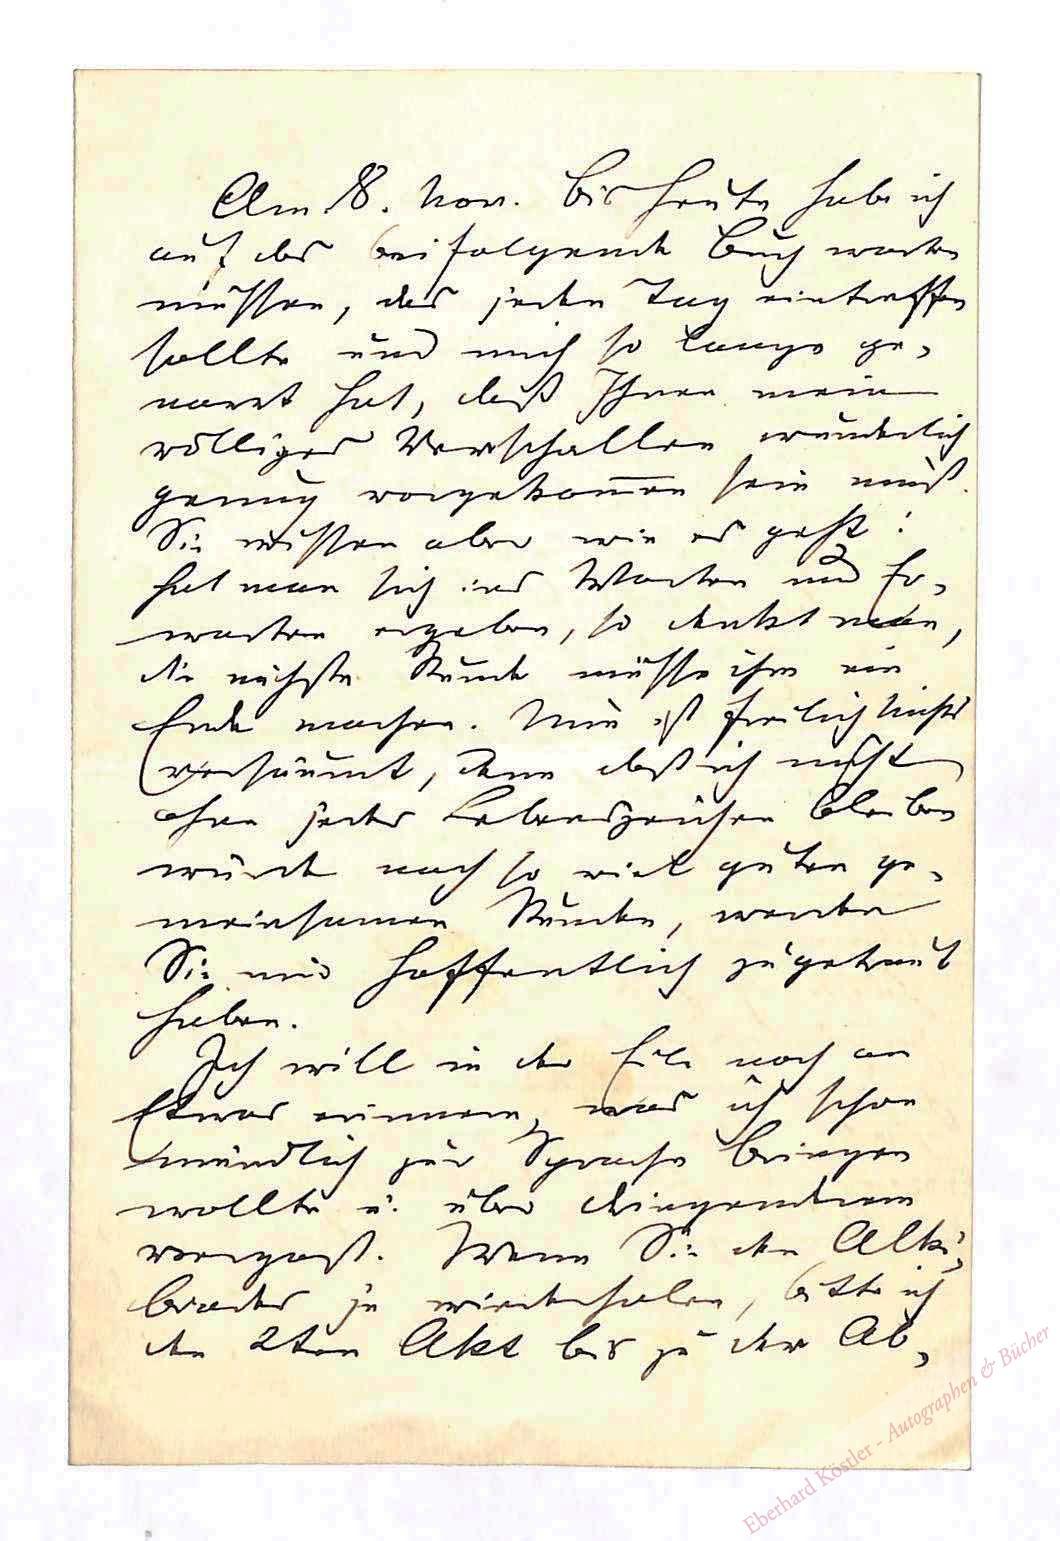 Am 18. Nov. Bis heute habe ich
auf das beifolgende Buch warten
müssen, das jeden Tag eintreffen
sollte und mich so lange ge-
narrt hat, daß Ihnen mein
völliges Verschallen wunderlich
genug vorgekom̅en sein muß.
Sie wissen aber wie es geht:
hat man sich ins Warten und Er-
warten ergeben, so denkt man,
die nächste Stunde müsse ihm ein
Ende machen. Nun ist freilich Nichts
versäumt, denn daß ich nicht
ohne jedes Lebenszeichen bleiben
würde nach so viel guten ge-
meinsamen Stunden, werden
Sie mir hoffentlich zugetraut
haben.
Ich will in der Eile noch an
Etwas erinnern, was ich schon
mündlich zur Sprache bringen
wollte u. über Dringenderem
vergaß. Wenn Sie den Alki-
biades je wiederholen, bitte ich
den 2ten Akt bis zu der Ab-
Eberhard Köstler - Autographen & Bücher